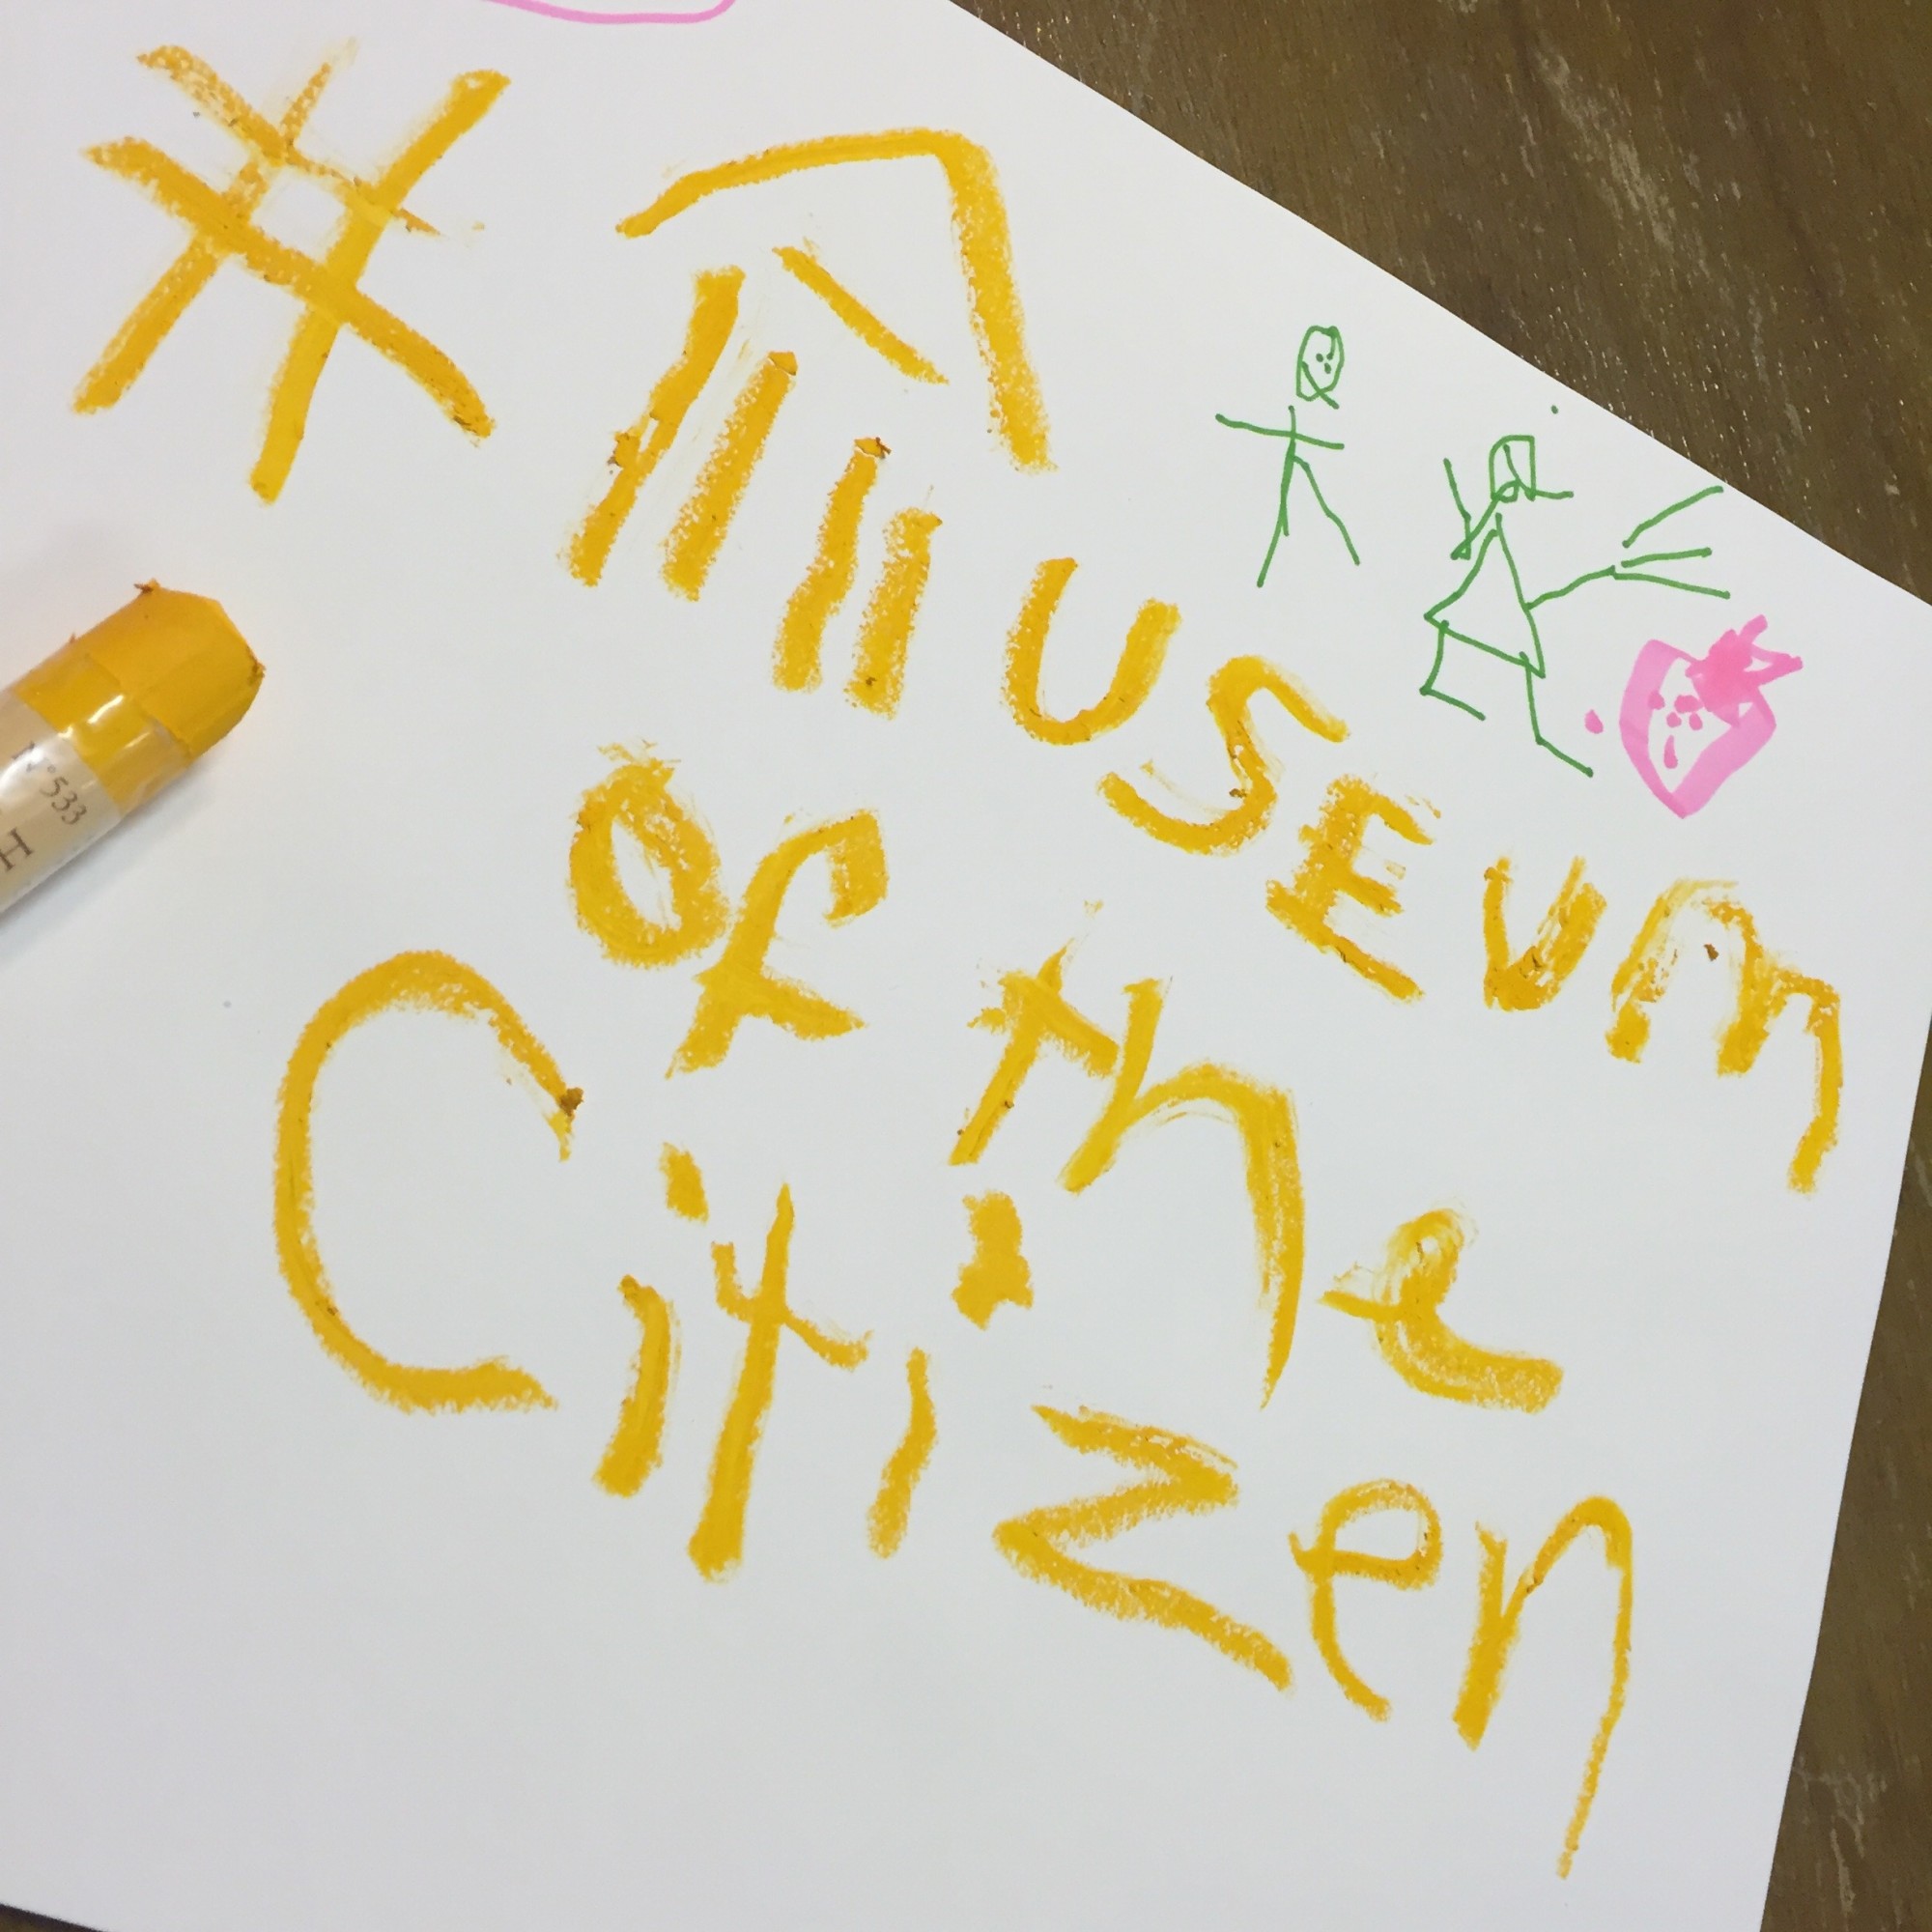 # MUSEUM
of the
Citizen
N°533
H